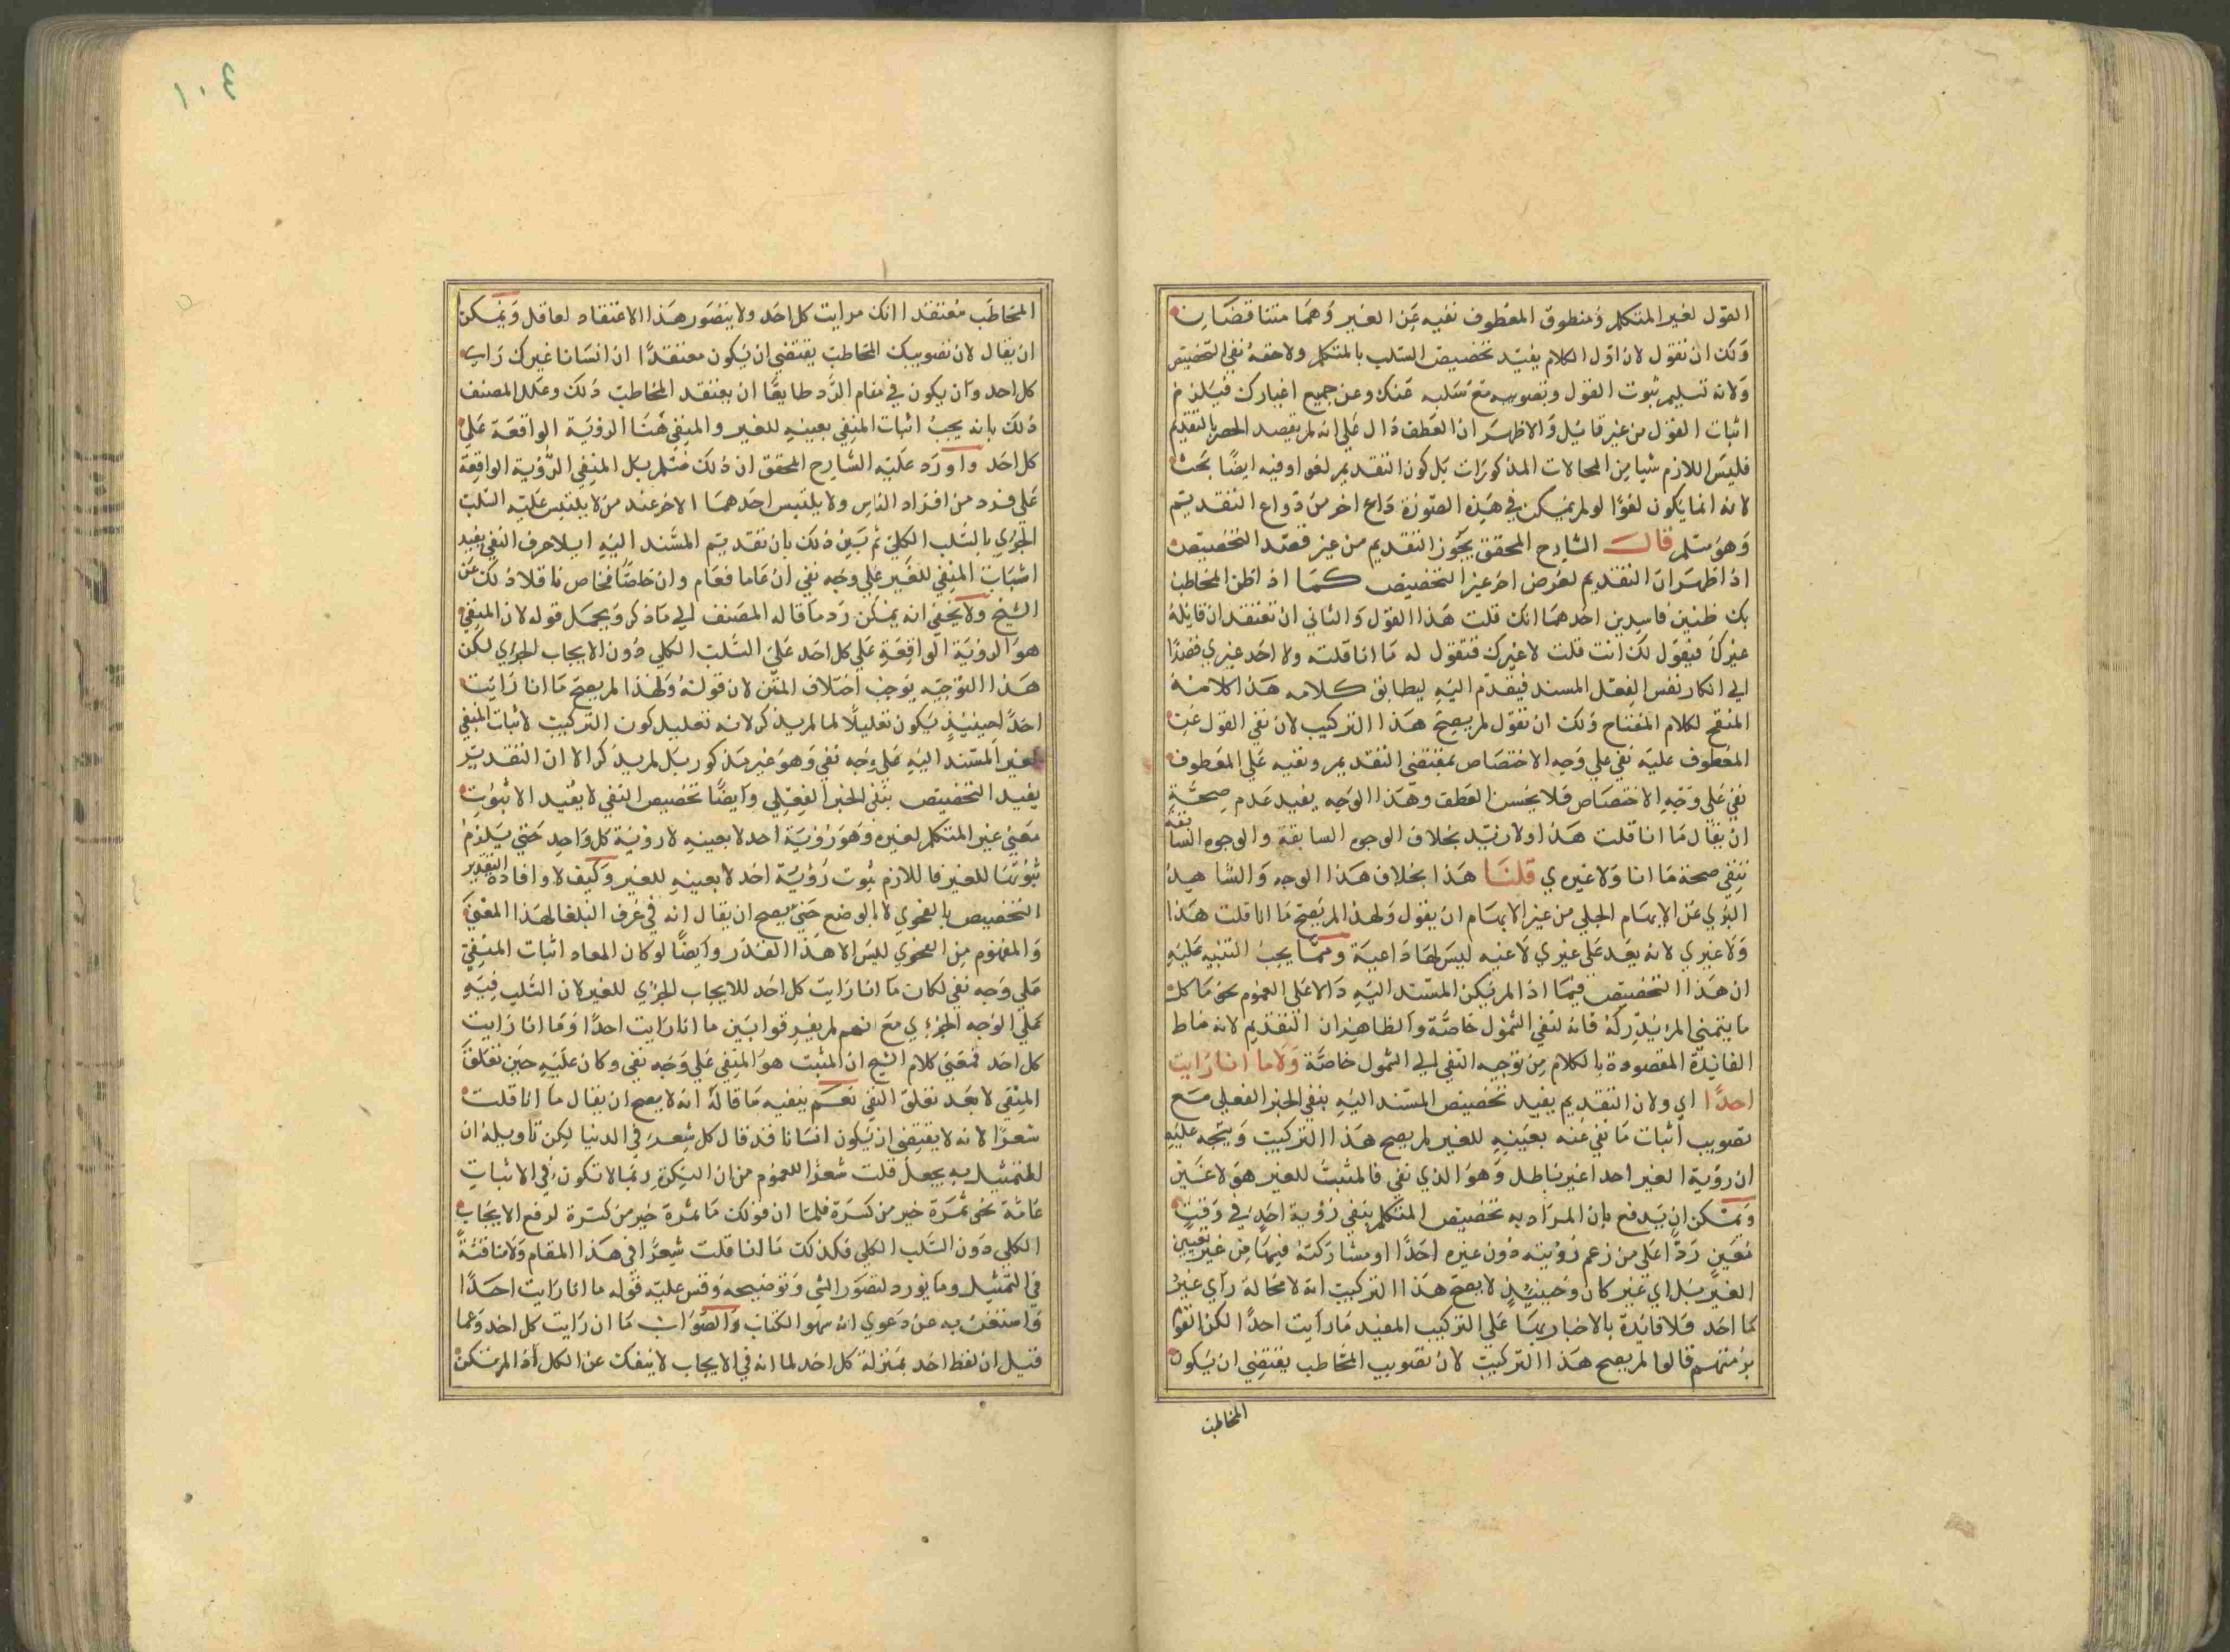 القول لغير المتكلم ومنطوق المعطوف نفيه عن الغير وهما متناقضان
ولك ان تقول لان اول الكلام يفيد تخصيص السلب بالمتكلم ولاحقه نفي التخصيص
ولانه تسليم ثبوت القول وتصويبه مع سلبه عنك وعن جميع اغيارك فيلزم
اثبات القول من غير قايل والاظهر ان العطف دال علي انه لم يقصد الحصر بالتقديم
فليس اللازم شيا من المحالات المذكورات بل كون التقديم لغوا وفيه ايضا بحث
لانه انما يكون لغوا لو لم يمكن في هذه الصورة داع اخر من دواع التقديم
وهو مسلم قال الشارح المحقق يجوز التقديم من غير قصد التخصيص
اذ اظهر ان التقديم لغرض اخر غير التخصيص كما اذ اظن المخاطب
بك ظنين فاسدين احدهما انك قلت هذا القول والثاني ان تعتقد ان قائله
غيرك فيقول لك انت قلت لا غيرك فتقول له ما انا قلته ولا احد غيري قصدا
الي انكار نفس الفعل المسند فيقدم اليه ليطابق كلامه هذا كلامه
المنقح لكلام المفتاح ولك ان تقول لم يصح هذا التركيب لان نفي القول عن
المعطوف عليه نفي علي وجه الاختصاص بمقتضي التقديم ونفيه علي المعطوف
نفي علي وجه الاختصاص فلا يحسن العطف وهذا الوجه يفيد عدم صحة
ان يقال ما انا قلت هذا ولا زيد بخلاف الوجوه السابقة والوجوه السابقة
تنفي صحة ما انا ولا غيري قلنا هذا بخلاف هذا الوجه والشاهد
البري عن الابهام الجلي من غير الابهام ان يقول ولهذا لم يصح ما انا قلت هذا
ولا غيري لانه يعد علي غيري لاغيه ليس لها داعية ومما يجب التنبيه عليه
ان هذا التخصيص فيما اذا لم يكن المسند اليه دالا علي العموم نحو ما كل
ما يتمني المرء يدركه فانه لنفي الشمول خاصة والظاهر ان التقديم لانه مناط
الفائدة المقصودة بالكلام من توجيه النفي الي الشمول خاصة ولا ما انا رايت
احدا اي ولان التقديم يفيد تخصيص المسند اليه بنفي الخبر الفعلي مع
تصويب اثبات ما نفي عنه بعينه للغير لم يصح هذا التركيب ويتجه عليه
ان روية الغير احدا غير باطل وهو الذي نفي فالمثبت للغير هو لا غير
ويمكن ان يدفع بان المراد به تخصيص المتكلم بنفي رؤية احد في وقت
معين ردا علي من زعم رؤيته دون غيره احدا او مشاركته فيها من غير تعيين
الغير بل اي غير كان وحينئذ لا يصح هذا التركيب انه لا محالة راي غير
كما احد فلا فائدة بالاخبار بها علي التركيب المفيد ما رايت احدا لكن القوم
برمتهم قالوا لم يصح هذا التركيب لان تصويب المخاطب يقتضي ان يكون
المخاطب
١٠٤
المخاطب معتقدا انك مرايت كل احد ولا يتصور هذا الاعتقاد لعاقل ويمكن
ان يقال لان تصويبك المخاطب يقتضي ان يكون معتقدا ان انسانا غيرك راي
كل احد وان يكون في مقام الرد طابقا ان يعتقد المخاطب ذلك وعلل المصنف
ذلك بانه يجب اثبات المنفي بعينه للغير والمنفي هنا الرؤية الواقعة علي
كل احد واورد عليه الشارح المحقق ان ذلك مسلم بل المنفي الرؤية الواقعة
علي فرد من افراد الناس ولا يلتبس احدهما الاخر عند من لا يلتبس عليه السلب
الجزي بالسلب الكلي ثم بين ذلك بان تقديم المسند اليه ايلا حرف النفي يفيد
اثبات المنفي للغير علي وجه نفي ان عاما فعام وان خاصا فخاص ناقلا ذلك عن
الشيخ ولا يخفي انه يمكن رد ما قاله المصنف الي ما ذكر ويجعل قوله لان المنفي
هو الرؤية الواقعة علي كل احد علي السلب الكلي دون الايجاب الجزي لكن
هذا التوجيه يوجب اختلاف المتن لان قوله ولهذا لم يصح ما انا رايت
احدا حينئذ يكون تعليلا لما لم يذكر لانه تعليل كون التركيب لاثبات المنفي
لغير المسند اليه علي وجه نفي وهو غير مذكور بل لم يذكر الا ان التقديم
يفيد التخصيص بنفي الخبر الفعلي وايضا تخصيص النفي لا يفيد الا ثبوت
معني غير المتكلم لغيره وهو رؤية احد لا بعينه لا رؤية كل واحد حتي يلزم
ثبوتها للغير فاللازم ثبوت رؤية احد لا بعينه للغير وكيف لا وافادة التقديم
التخصيص بالفحوي لا بالوضع حتي يصح ان يقال انه في عرف البلغا لهذا المعني
والمفهوم من الفحوي لليس الا هذا القدر وايضا لو كان المعاد اثبات المنفي
علي وجه نفي لكان ما انا رايت كل احد للايجاب الجزي للغير لان السلب فيه
علي الوجه الجزءي مع انهم لم يفرقوا بين ما انا رايت احدا وما انا رايت
كل احد فمعني كلام الشيخ ان المثبت هو المنفي علي وجه نفي وكان عليه حين تعلق
المنفي لا بعد تعلق النفي نعم ينفيه ما قاله انه لا يصح ان يقال ما انا قلت
شعرا لانه لا يقتضي ان يكون انسانا قد قال كل شعر في الدنيا لكن تاويله ان
المتمثيل به يجعل قلت شعرا للعموم من ان النكرة ربما لا تكون في الاثبات
عامة نحو تمرة خير من كسرة فلما ان قولك ما تمرة خير من كسرة لرفع الايجاب
الكلي دون السلب الكلي فكذلك ما انا قلت شعرا في هذا المقام ولا مناقشة
في التمثيل وما يورد لتصور الشي وتوضيحه وقس عليه قوله ما انا رايت احدا
واستغن به عن دعوي انه سهو الكتاب والصواب ما ان رايت كل احد وعما
قيل ان لفظ احد بمنزلة كل احد لما انه في الايجاب لا ينفك عن الكل اذ لم يمكن